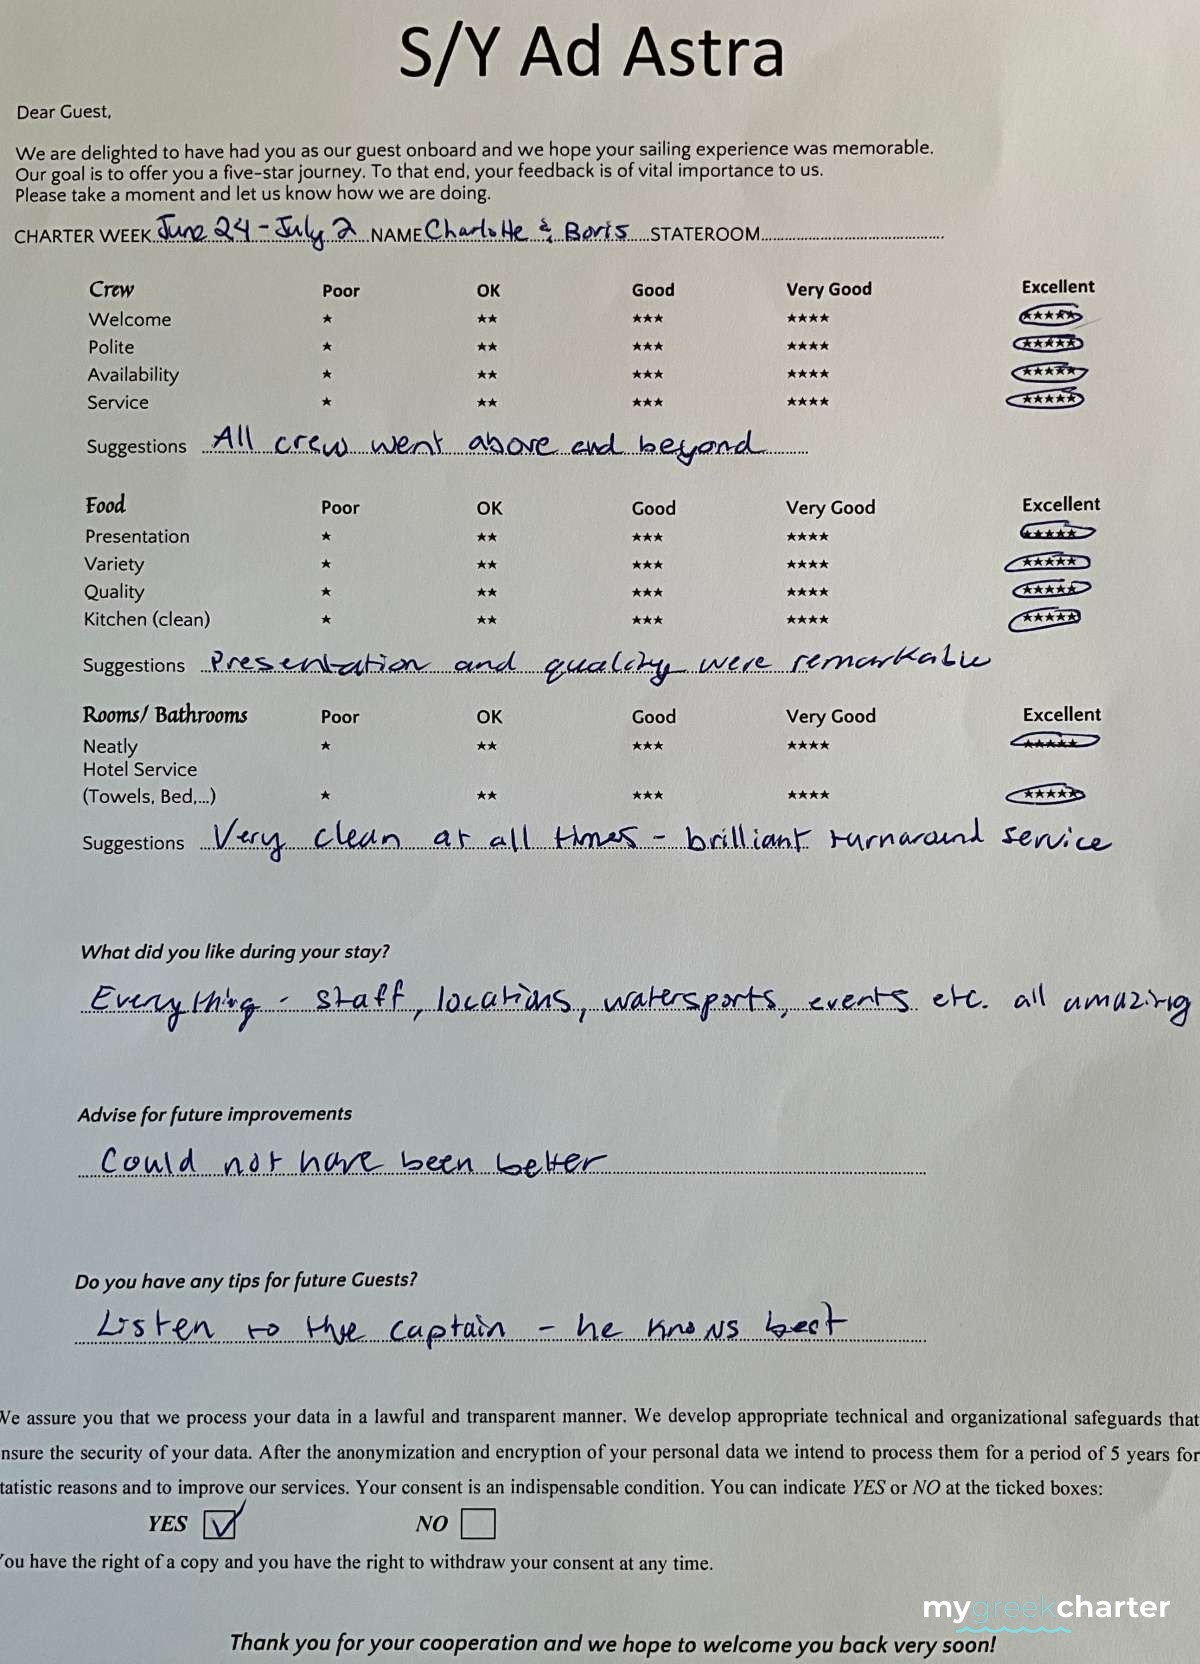 S/Y Ad Astra
Dear Guest,
We are delighted to have had you as our guest onboard and we hope your sailing experience was memorable.
Our goal is to offer you a five-star journey. To that end, your feedback is of vital importance to us.
Please take a moment and let us know how we are doing.
CHARTER WEEK June 24 - July 2 NAME Charlotte & Boris STATEROOM
Crew Poor OK Good Very Good Excellent
Welcome ★ ★★ ★★★ ★★★★ ★★★★★
Polite ★ ★★ ★★★ ★★★★ ★★★★★
Availability ★ ★★ ★★★ ★★★★ ★★★★★
Service ★ ★★ ★★★ ★★★★ ★★★★★
Suggestions All crew went above and beyond
Food Poor OK Good Very Good Excellent
Presentation ★ ★★ ★★★ ★★★★ ★★★★★
Variety ★ ★★ ★★★ ★★★★ ★★★★★
Quality ★ ★★ ★★★ ★★★★ ★★★★★
Kitchen (clean) ★ ★★ ★★★ ★★★★ ★★★★★
Suggestions Presentation and quality were remarkable
Rooms/ Bathrooms Poor OK Good Very Good Excellent
Neatly ★ ★★ ★★★ ★★★★ ★★★★★
Hotel Service
(Towels, Bed,...) ★ ★★ ★★★ ★★★★ ★★★★★
Suggestions Very clean at all times - brilliant turnaround service
What did you like during your stay?
Everything - staff, locations, watersports, events etc. all amazing
Advise for future improvements
Could not have been better
Do you have any tips for future Guests?
Listen to the captain - he knows best
We assure you that we process your data in a lawful and transparent manner. We develop appropriate technical and organizational safeguards that
nsure the security of your data. After the anonymization and encryption of your personal data we intend to process them for a period of 5 years for
tatistic reasons and to improve our services. Your consent is an indispensable condition. You can indicate YES or NO at the ticked boxes:
YES ☑ NO ☐
You have the right of a copy and you have the right to withdraw your consent at any time.
mygreekcharter
Thank you for your cooperation and we hope to welcome you back very soon!